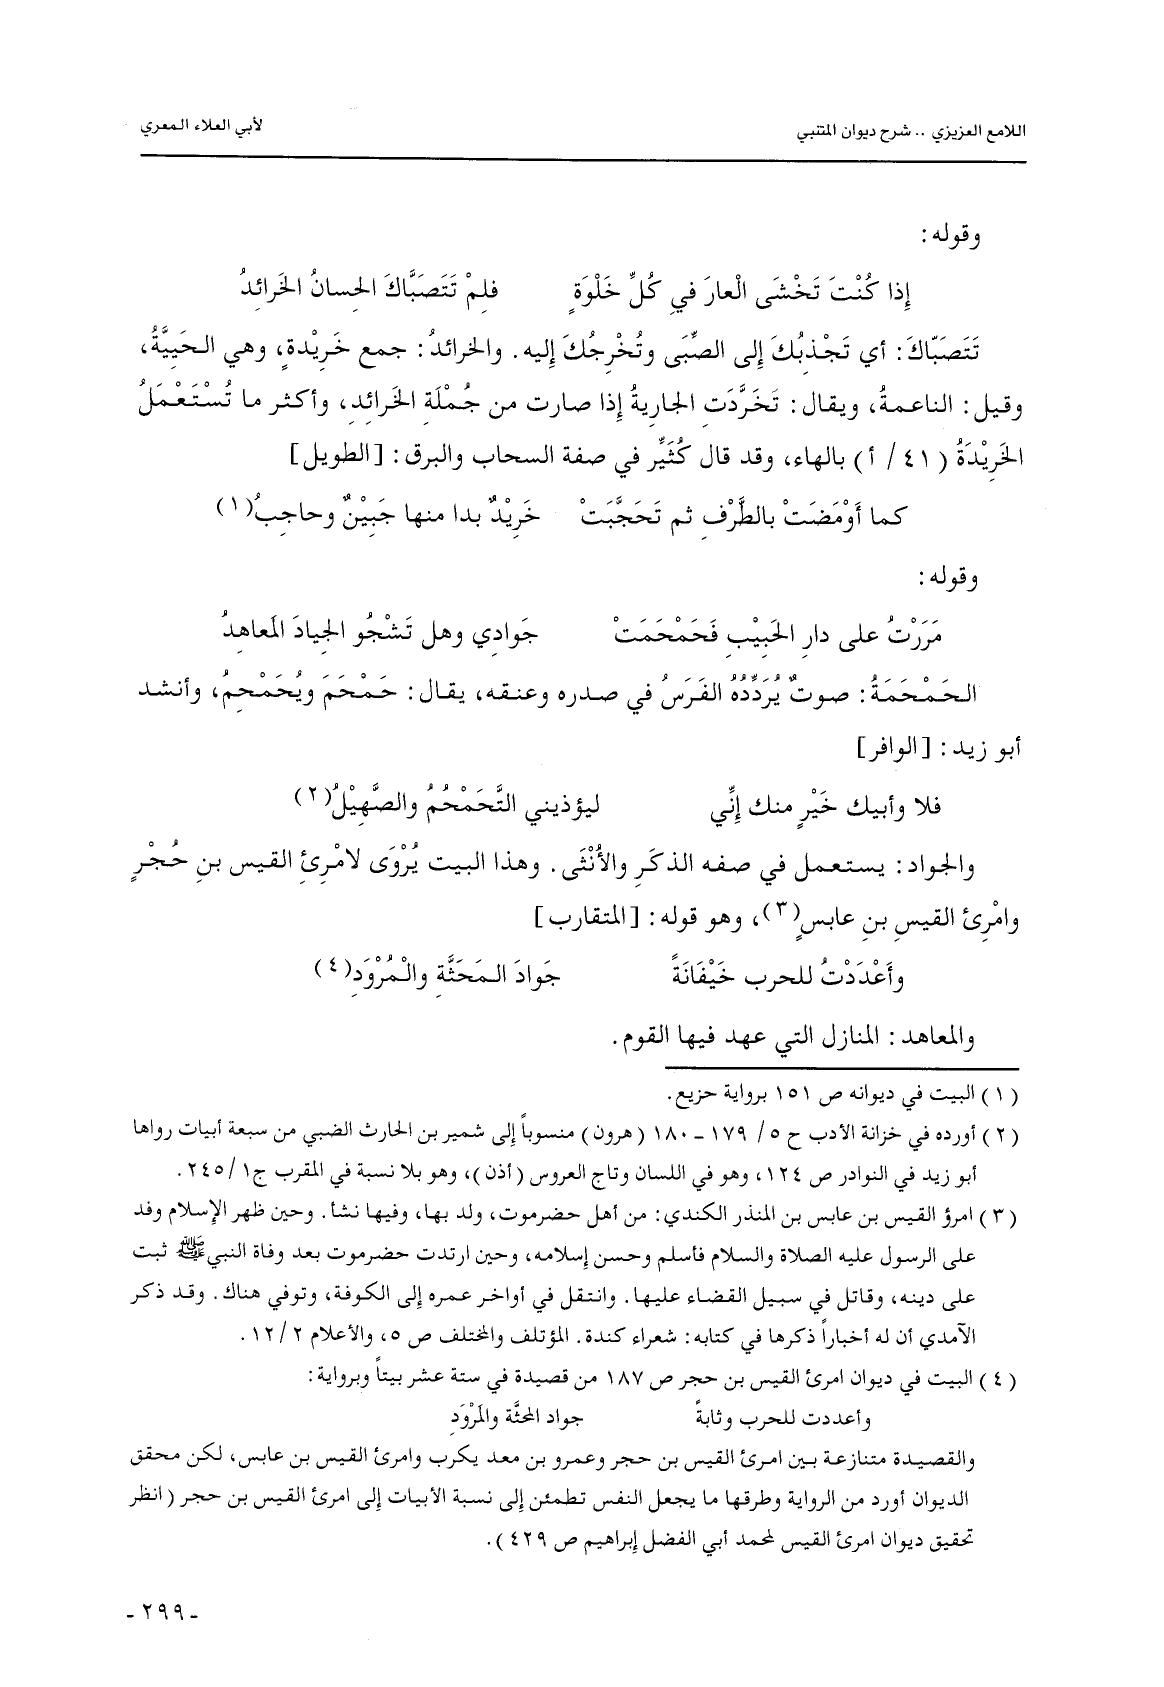 اللامع العزيزي .. شرح ديوان المتنبي
لأبي العلاء المعري
وقوله:
إذا كُنْتَ تَخْشَى الْعارَ في كُلِّ خَلْوَةٍ فلِمْ تَتَصَبَّاكَ الحِسانُ الخَرائِدُ
تَتَصَبّاكَ: أي تَجْذِبُكَ إلى الصِّبَى وتُخْرِجُكَ إليه. والخرائدُ: جمع خَرِيْدةٍ، وهي الحَيِيَّةُ،
وقيل: الناعمةُ، ويقال: تَخَرَّدَتِ الجاريةُ إذا صارت من جُمْلَةِ الخَرائِدِ، وأكثر ما تُسْتَعْمَلُ
الخَرِيْدَةُ (٤١/ أ) بالهاء، وقد قال كُثَيِّر في صفة السحاب والبرق: [الطويل]
كما أَوْمَضَتْ بالطَّرْفِ ثم تَحَجَّبَتْ خَرِيْدٌ بدا منها جَبِيْنٌ وحاجِبُ(١)
وقوله:
مَرَرْتُ على دارِ الحَبِيْبِ فَحَمْحَمَتْ جَوادِي وهل تَشْجُو الجِيادَ المَعاهِدُ
الحَمْحَمَةُ: صوتٌ يُرَدِّدُهُ الفَرَسُ في صدره وعنقه، يقال: حَمْحَمَ ويُحَمْحِمُ، وأنشد
أبو زيد: [الوافر]
فلا وأبيك خَيْرٍ منك إنِّي ليؤذيني التَّحَمْحُمُ والصَّهِيْلُ(٢)
والجواد: يستعمل في صفه الذكَرِ والأُنْثَى. وهذا البيت يُرْوَى لامْرِئِ القيس بنِ حُجْرٍ
وامْرِئ القيسِ بنِ عابسٍ(٣)، وهو قوله: [المتقارب]
وأَعْدَدْتُ للحرب خَيْفَانَةً جَوادَ المَحَثَّةِ والْمُرْوَدِ(٤)
والمعاهد: المنازل التي عهد فيها القوم.
(١) البيت في ديوانه ص ١٥١ برواية حزيع.
(٢) أورده في خزانة الأدب ح ٥/ ١٧٩ ـ ١٨٠ (هرون) منسوباً إلى شمير بن الحارث الضبي من سبعة أبيات رواها
أبو زيد في النوادر ص ١٢٤، وهو في اللسان وتاج العروس (أذن)، وهو بلا نسبة في المقرب ج١/ ٢٤٥.
(٣) امرؤ القيس بن عابس بن المنذر الكندي: من أهل حضرموت، ولد بها، وفيها نشأ. وحين ظهر الإسلام وفد
على الرسول عليه الصلاة والسلام فأسلم وحسن إسلامه، وحين ارتدت حضرموت بعد وفاة النبيﷺ ثبت
على دينه، وقاتل في سبيل القضاء عليها. وانتقل في أواخر عمره إلى الكوفة، وتوفي هناك. وقد ذكر
الآمدي أن له أخباراً ذكرها في كتابه: شعراء كندة. المؤتلف والمختلف ص ٥، والأعلام ٢/ ١٢.
(٤) البيت في ديوان امرئ القيس بن حجر ص ١٨٧ من قصيدة في ستة عشر بيتاً وبرواية:
وأعددت للحرب وثابةً جواد المحثَّة والمَرْوَدِ
والقصيدة متنازعة بين امرئ القيس بن حجر وعمرو بن معد يكرب وامرئ القيس بن عابس، لكن محقق
الديوان أورد من الرواية وطرقها ما يجعل النفس تطمئن إلى نسبة الأبيات إلى امرئ القيس بن حجر (انظر
تحقيق ديوان امرئ القيس لمحمد أبي الفضل إبراهيم ص ٤٢٩).
- ٢٩٩ -